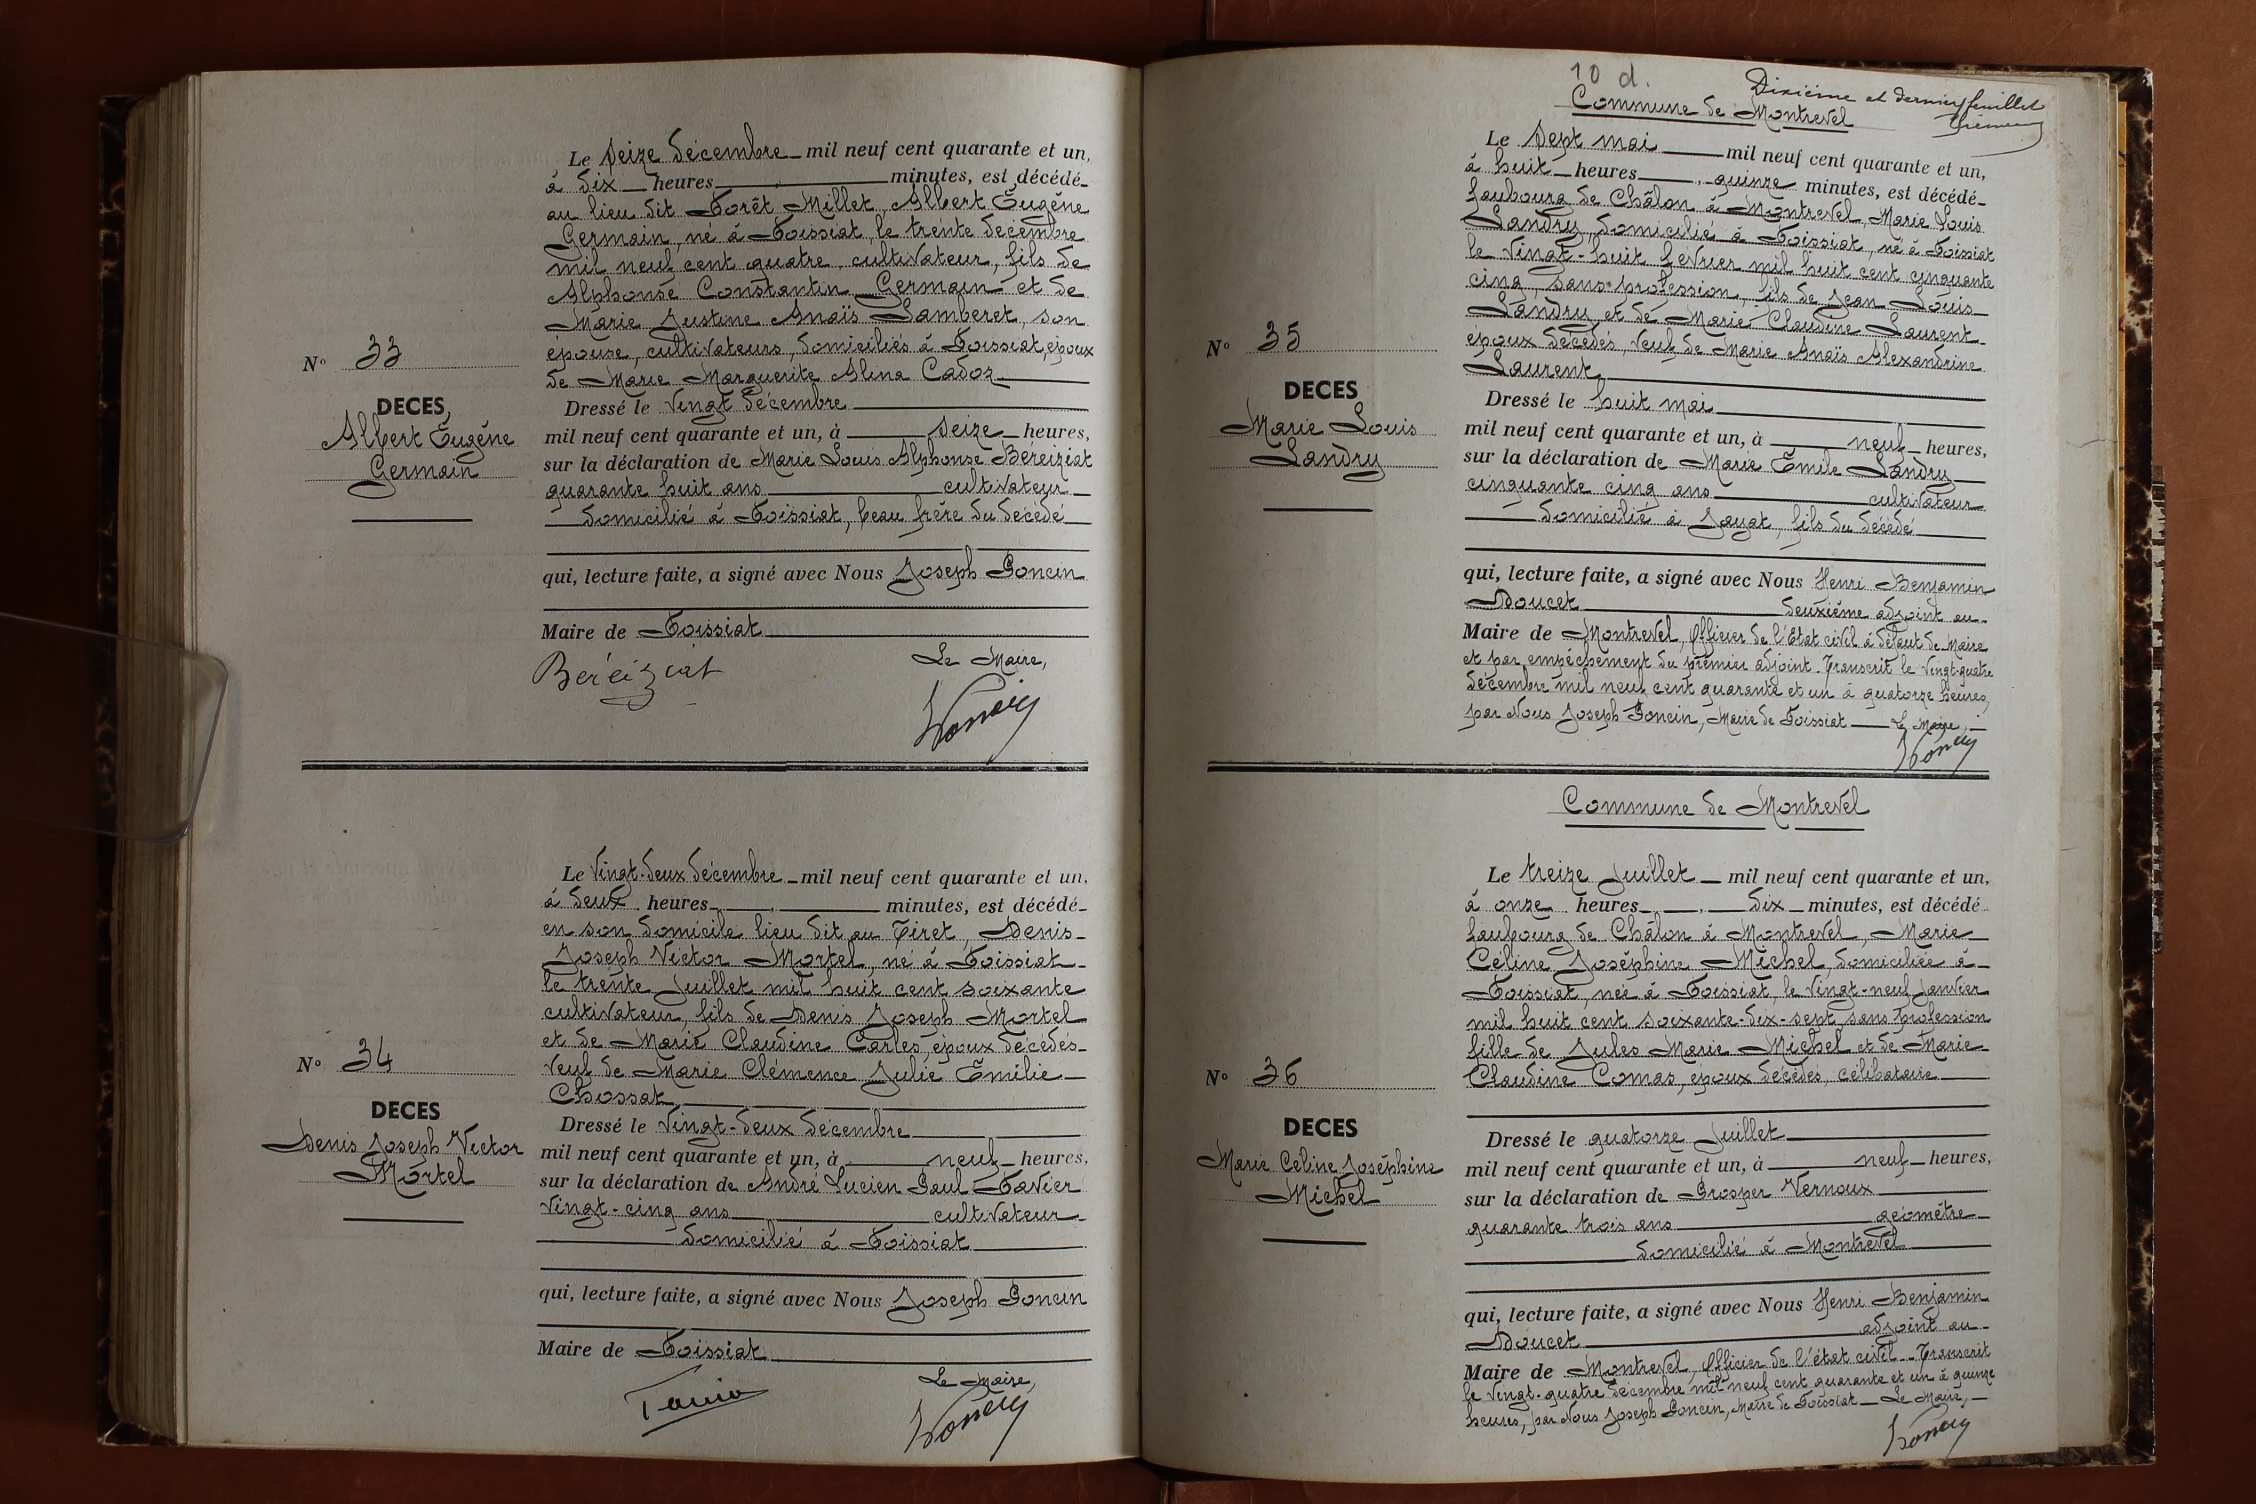 Le seize décembre mil neuf cent quarante et un,
à dix heures minutes, est décédé
au lieu dit Forêt Millet, Albert Eugène
Germain, né à Foissiat, le trente décembre
mil neuf cent quatre, cultivateur, fils de
Alphonse Constantin Germain et de
Marie Justine Anaïs Lamberet, son
épouse, cultivateurs, domiciliés à Foissiat, époux
de Marie Marguerite Alina Cadoz
N° 33
DECES
Albert Eugène
Germain
Dressé le vingt décembre
mil neuf cent quarante et un, à seize heures,
sur la déclaration de Marie Louis Alphonse Bereiziat
quarante huit ans cultivateur
domicilié à Foissiat, beau frère du décédé
qui, lecture faite, a signé avec Nous Joseph Poncin
Maire de Foissiat
Le Maire,
Beréiziat
Poncin
Le vingt-deux décembre mil neuf cent quarante et un,
à deux heures minutes, est décédé
en son domicile lieu dit au Tiret, Denis
Joseph Victor Mortel, né à Foissiat
le trente juillet mil huit cent soixante
cultivateur, fils de Denis Joseph Mortel
et de Marie Claudine Carles, époux décédés
veuf de Marie Clémence Julie Emilie
Chossat
N° 34
DECES
Denis Joseph Victor
Mortel
Dressé le vingt-deux décembre
mil neuf cent quarante et un, à neuf heures,
sur la déclaration de André Lucien Paul Favier
vingt-cinq ans cultivateur
domicilié à Foissiat
qui, lecture faite, a signé avec Nous Joseph Poncin
Maire de Foissiat
Le Maire,
Favier
Poncin
10 d.
Dixième et dernier feuillet
Commune de Montrevel
Le sept mai mil neuf cent quarante et un,
à huit heures quinze minutes, est décédé
faubourg de Châlon à Montrevel, Marie Louis
Landry, domicilié à Foissiat, né à Foissiat
le vingt-huit février mil huit cent cinquante
cinq, sans profession, fils de Jean Louis
Landry et de Marie Claudine Laurent
époux décédés, veuf de Marie Anaïs Alexandrine
Laurent
N° 35
DECES
Marie Louis
Landry
Dressé le huit mai
mil neuf cent quarante et un, à neuf heures,
sur la déclaration de Marie Emile Landry
cinquante cinq ans cultivateur
domicilié à Jayat, fils du décédé
qui, lecture faite, a signé avec Nous Henri Benjamin
Doucet deuxième adjoint au
Maire de Montrevel, Officier de l'Etat civil à défaut de Maire
et par empéchement du premier adjoint. Transcrit le vingt-quatre
décembre mil neuf cent quarante et un à quatorze heures,
par Nous Joseph Poncin, Maire de Foissiat Le Maire,
Poncin
Commune de Montrevel
Le treize juillet mil neuf cent quarante et un,
à onze heures dix minutes, est décédé
faubourg de Châlon à Montrevel, Marie
Céline Joséphine Michel, domiciliée à
Foissiat, née à Foissiat, le vingt-neuf janvier
mil huit cent soixante-dix-sept, sans profession
fille de Jules Marie Michel et de Marie
Claudine Comas, époux décédés, célibataire
N° 36
DECES
Marie Céline Joséphine
Michel
Dressé le quatorze juillet
mil neuf cent quarante et un, à neuf heures,
sur la déclaration de Prosper Vernoux
quarante trois ans géomètre
domicilié à Montrevel
qui, lecture faite, a signé avec Nous Henri Benjamin
Doucet adjoint au
Maire de Montrevel, Officier de l'état civil. Transcrit
le vingt-quatre décembre mil neuf cent quarante et un à quinze
heures, par Nous Joseph Poncin, Maire de Foissiat Le Maire,
Poncin